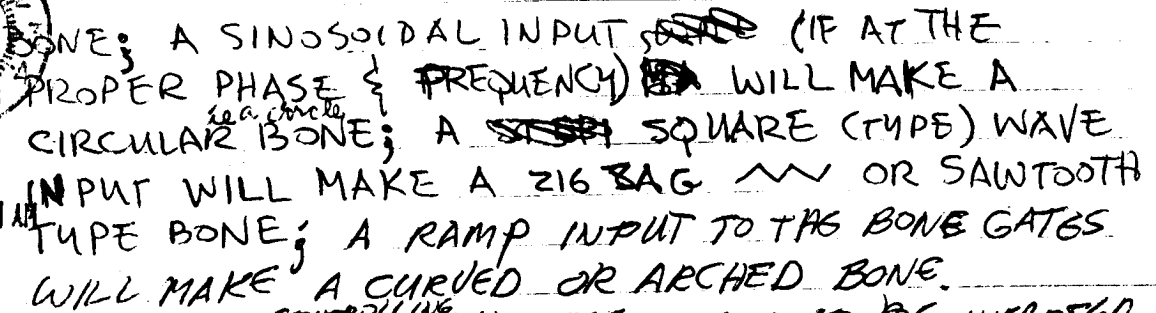 BONE; A SINOSOIDAL INPUT (IF AT THE
PROPER PHASE & FREQUENCY) WILL MAKE A
ie a circle
CIRCULAR BONE; A SQUARE (TYPE) WAVE
INPUT WILL MAKE A ZIG ZAG OR SAWTOOTH
TYPE BONE; A RAMP INPUT TO THE BONE GATES
WILL MAKE A CURVED OR ARCHED BONE.
CONTROLLING
BE